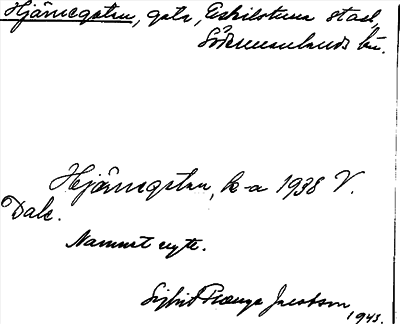 Hjärnegatan, gata, Eskilstuna stad,
Södermanlands län.
Hjärnegatan, k-a 1938 V.
Dale.
Namnet nytt.
Sigrid Prange Jacobson
1943.